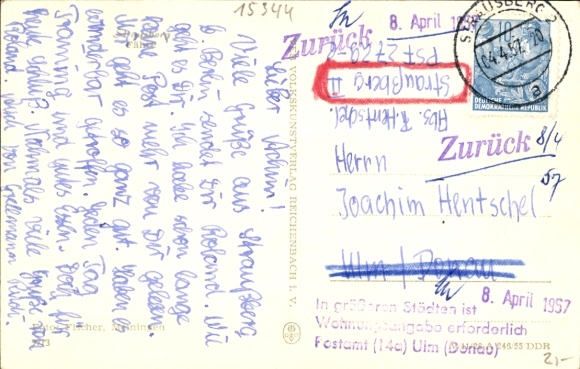 15344
Lieber Achim!
Viele Grüße aus Strausberg
sendet Dir Roland. Wie
geht es Dir. Ich habe schon lange
keine Post mehr von Dir gelesen.
geht es so ganz gut. Haben es
getroffen. Jeden Tag
Training und gutes Essen. Doch für
heute Schluß. Nochmals viele Grüße von
Roland und von
Foto: Fischer, Meiningen
VOLKSKUNSTVERLAG REICHENBACH I. V.
Zurück
8. April 1957
STRAUSBERG 2
04.4.57. 20
a
10
DEUTSCHE
DEMOKRATISCHE REPUBLIK
Abs. R. Hentschel
Straußberg II
PSF 2778
Zurück
8/4
57
Herrn
Joachim Hentschel
Ulm / Donau
8. April 1957
In größeren Städten ist
Wohnungsangabe erforderlich
Postamt (14a) Ulm (Donau)
DDR
2,-